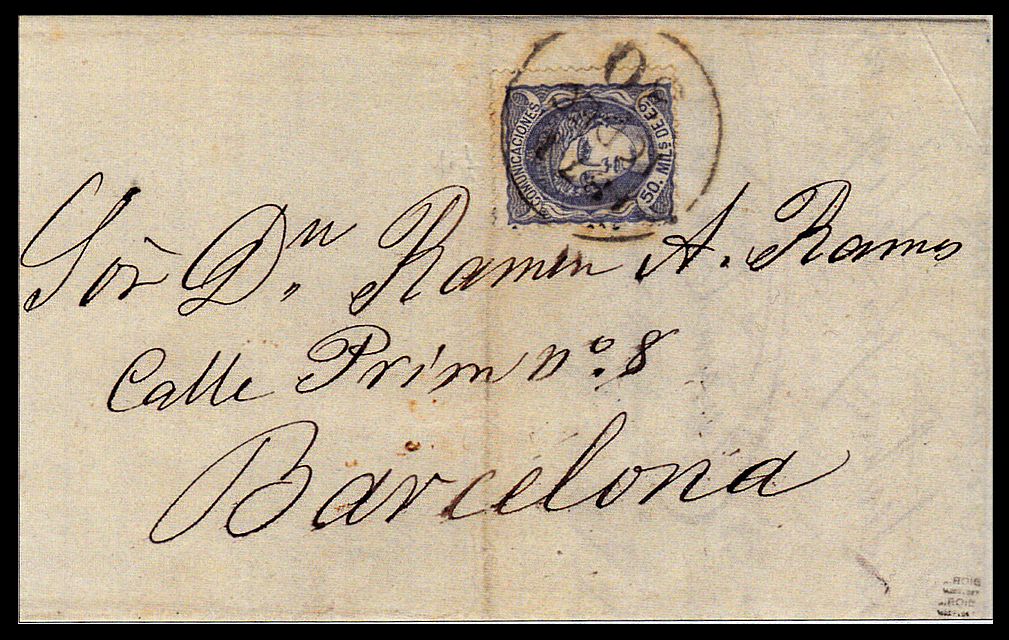 COMUNICACIONES
50. MILS DE Eº
Sòr Dn. Ramon A. Ramos
Calle Prim nº. 8
Barcelona